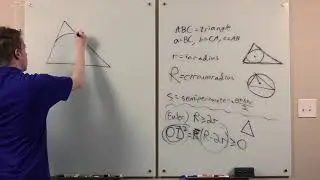 ABC = triangle
a=BC, b=CA, c=AB
r = inradius
R = circumradius
S = semiperimeter =
(Euler) R ≥ 2r
OI² = R(R-2r) ≥ 0